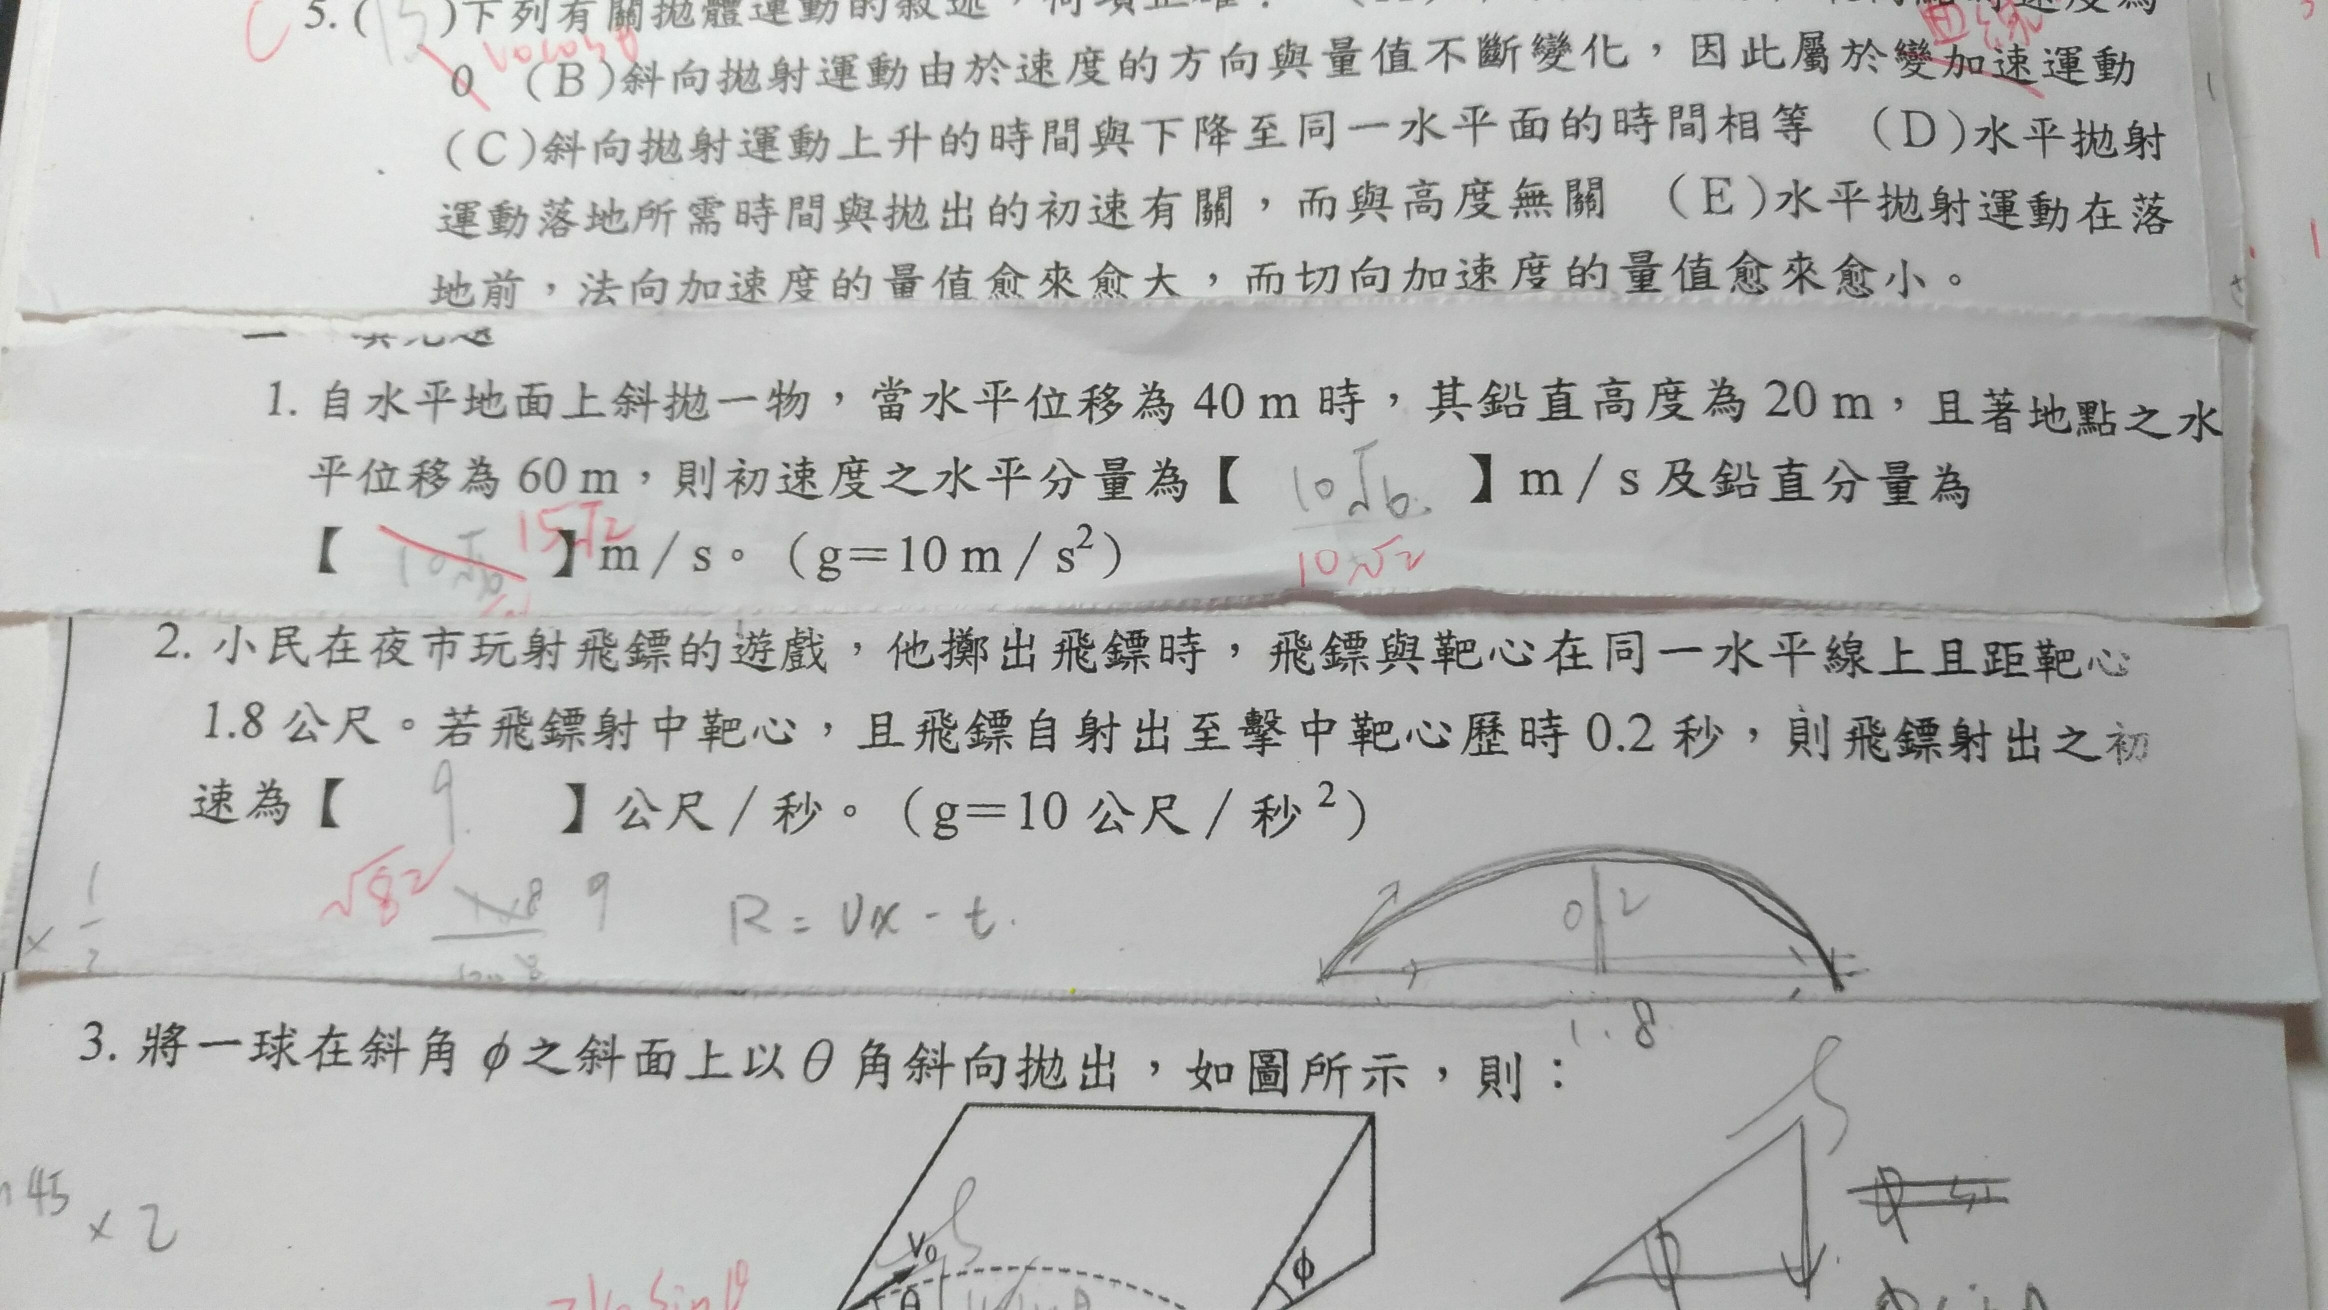 C 5. ( )下列有關拋體運動的敘述，何項正確？
v0cosθ 曲線
0 (B)斜向拋射運動由於速度的方向與量值不斷變化，因此屬於變加速運動
(C)斜向拋射運動上升的時間與下降至同一水平面的時間相等 (D)水平拋射
運動落地所需時間與拋出的初速有關，而與高度無關 (E)水平拋射運動在落
地前，法向加速度的量值愈來愈大，而切向加速度的量值愈來愈小。
1. 自水平地面上斜拋一物，當水平位移為 40 m 時，其鉛直高度為 20 m，且著地點之水
平位移為 60 m，則初速度之水平分量為【 10√6 】m/s 及鉛直分量為
【 10√6 15√2 】m/s。(g=10 m/s²)
10√2
2. 小民在夜市玩射飛鏢的遊戲，他擲出飛鏢時，飛鏢與靶心在同一水平線上且距靶心
1.8 公尺。若飛鏢射中靶心，且飛鏢自射出至擊中靶心歷時 0.2 秒，則飛鏢射出之初
速為【 9 】公尺/秒。(g=10 公尺/秒²)
√82 9 R = Vx - t. 0 2
1.8
3. 將一球在斜角 ϕ 之斜面上以 θ 角斜向拋出，如圖所示，則：
45 × 2
V0
ϕ
θ